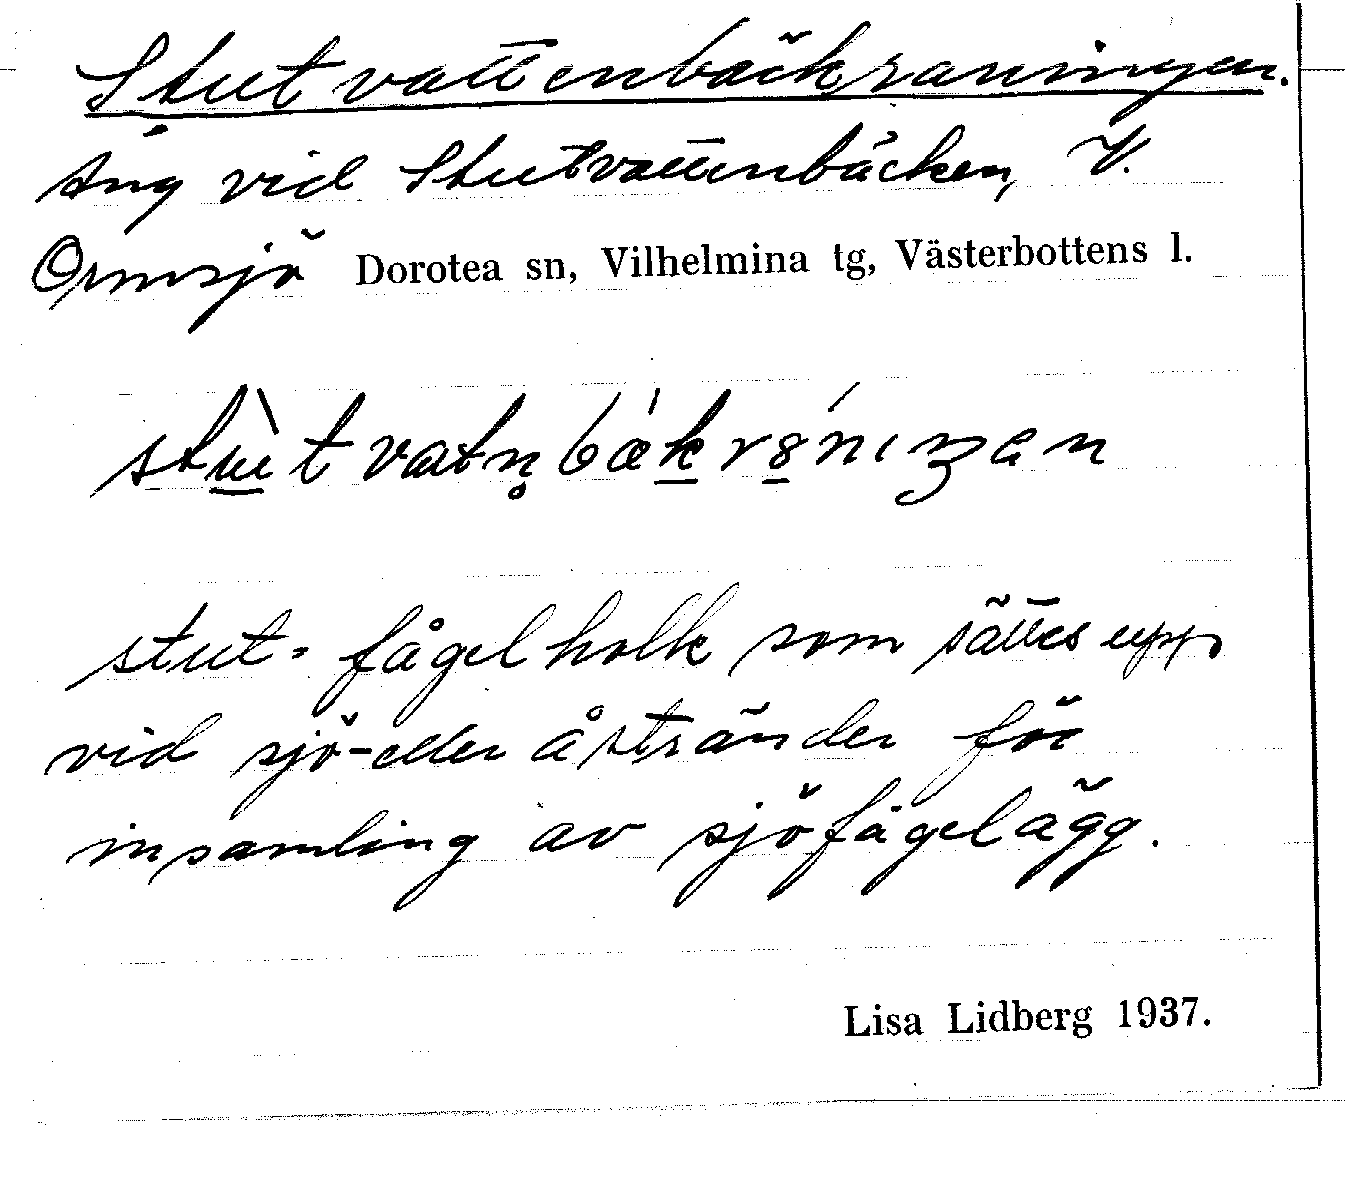 Stutvattenbäckraningen.
Äng vid Stutvattenbäcken, V.
Ormsjö Dorotea sn, Vilhelmina tg, Västerbottens l.
stut- fågelholk som sättes upp
vid sjö- eller åstränder för
insamling av sjöfågelägg.
Lisa Lidberg 1937.